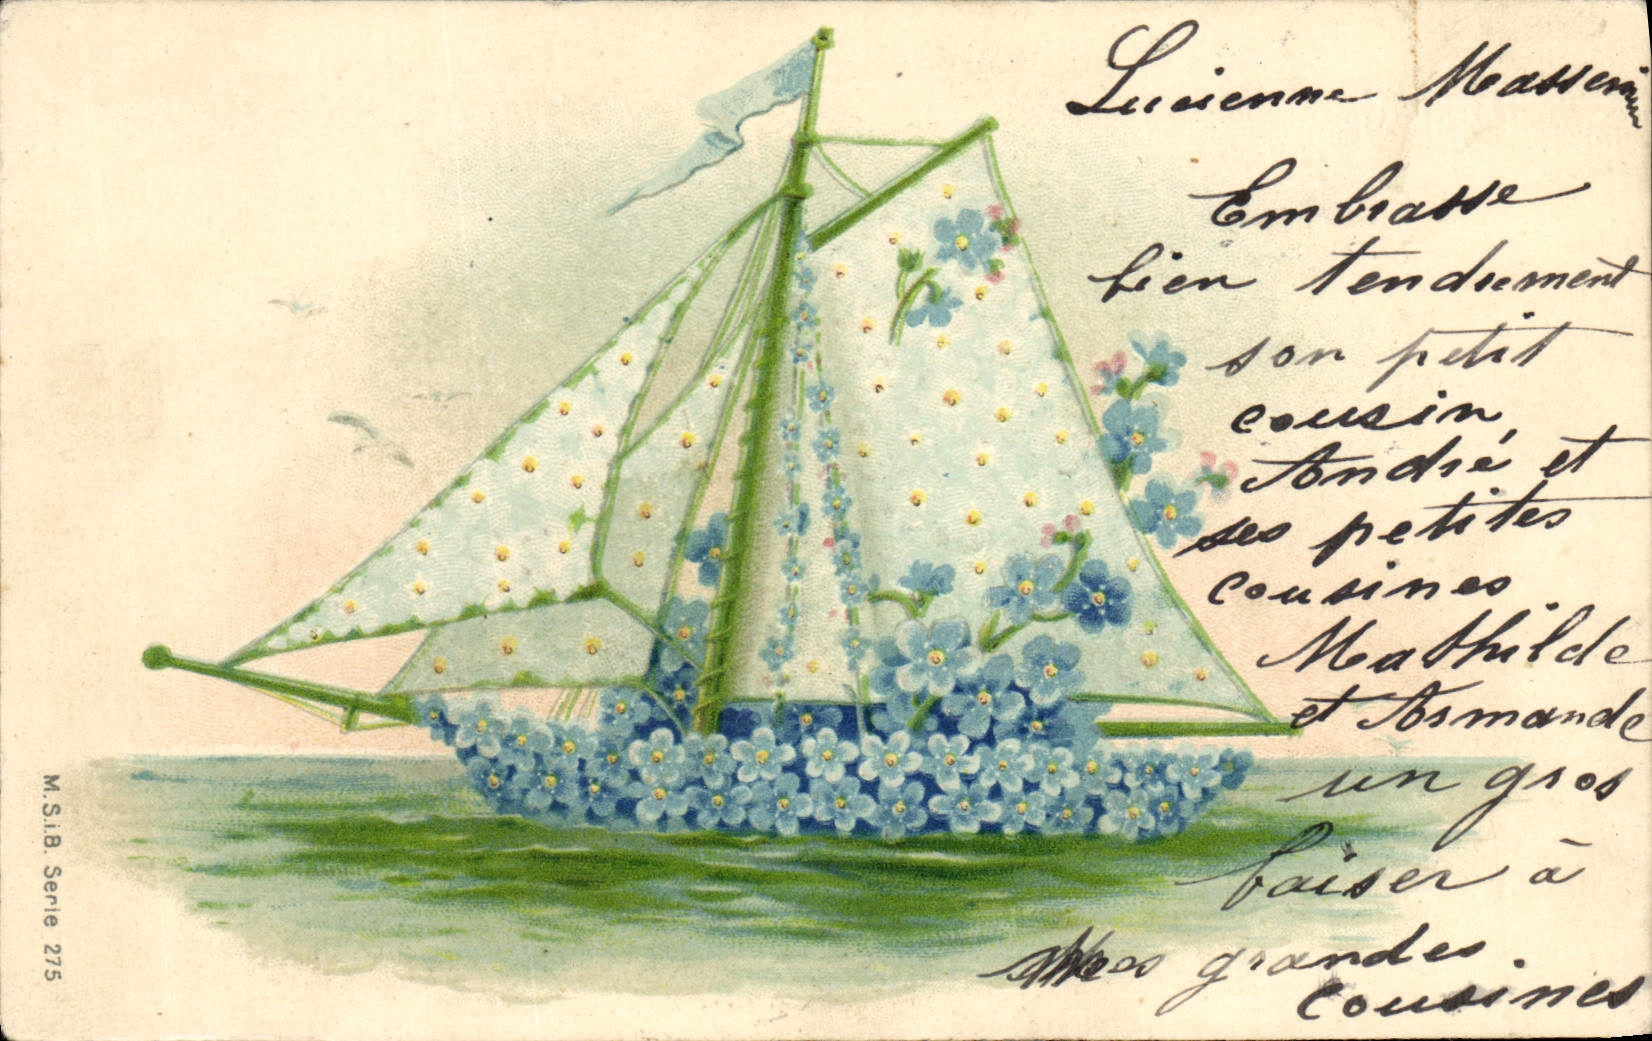 Lucienne
Embrasse
bien tendrement
son petit
cousin,
André et
ses petites
cousines
Mathilde
et Armande
un gros
baiser à
Mes grandes
cousines
M.S.i.B. Serie 275